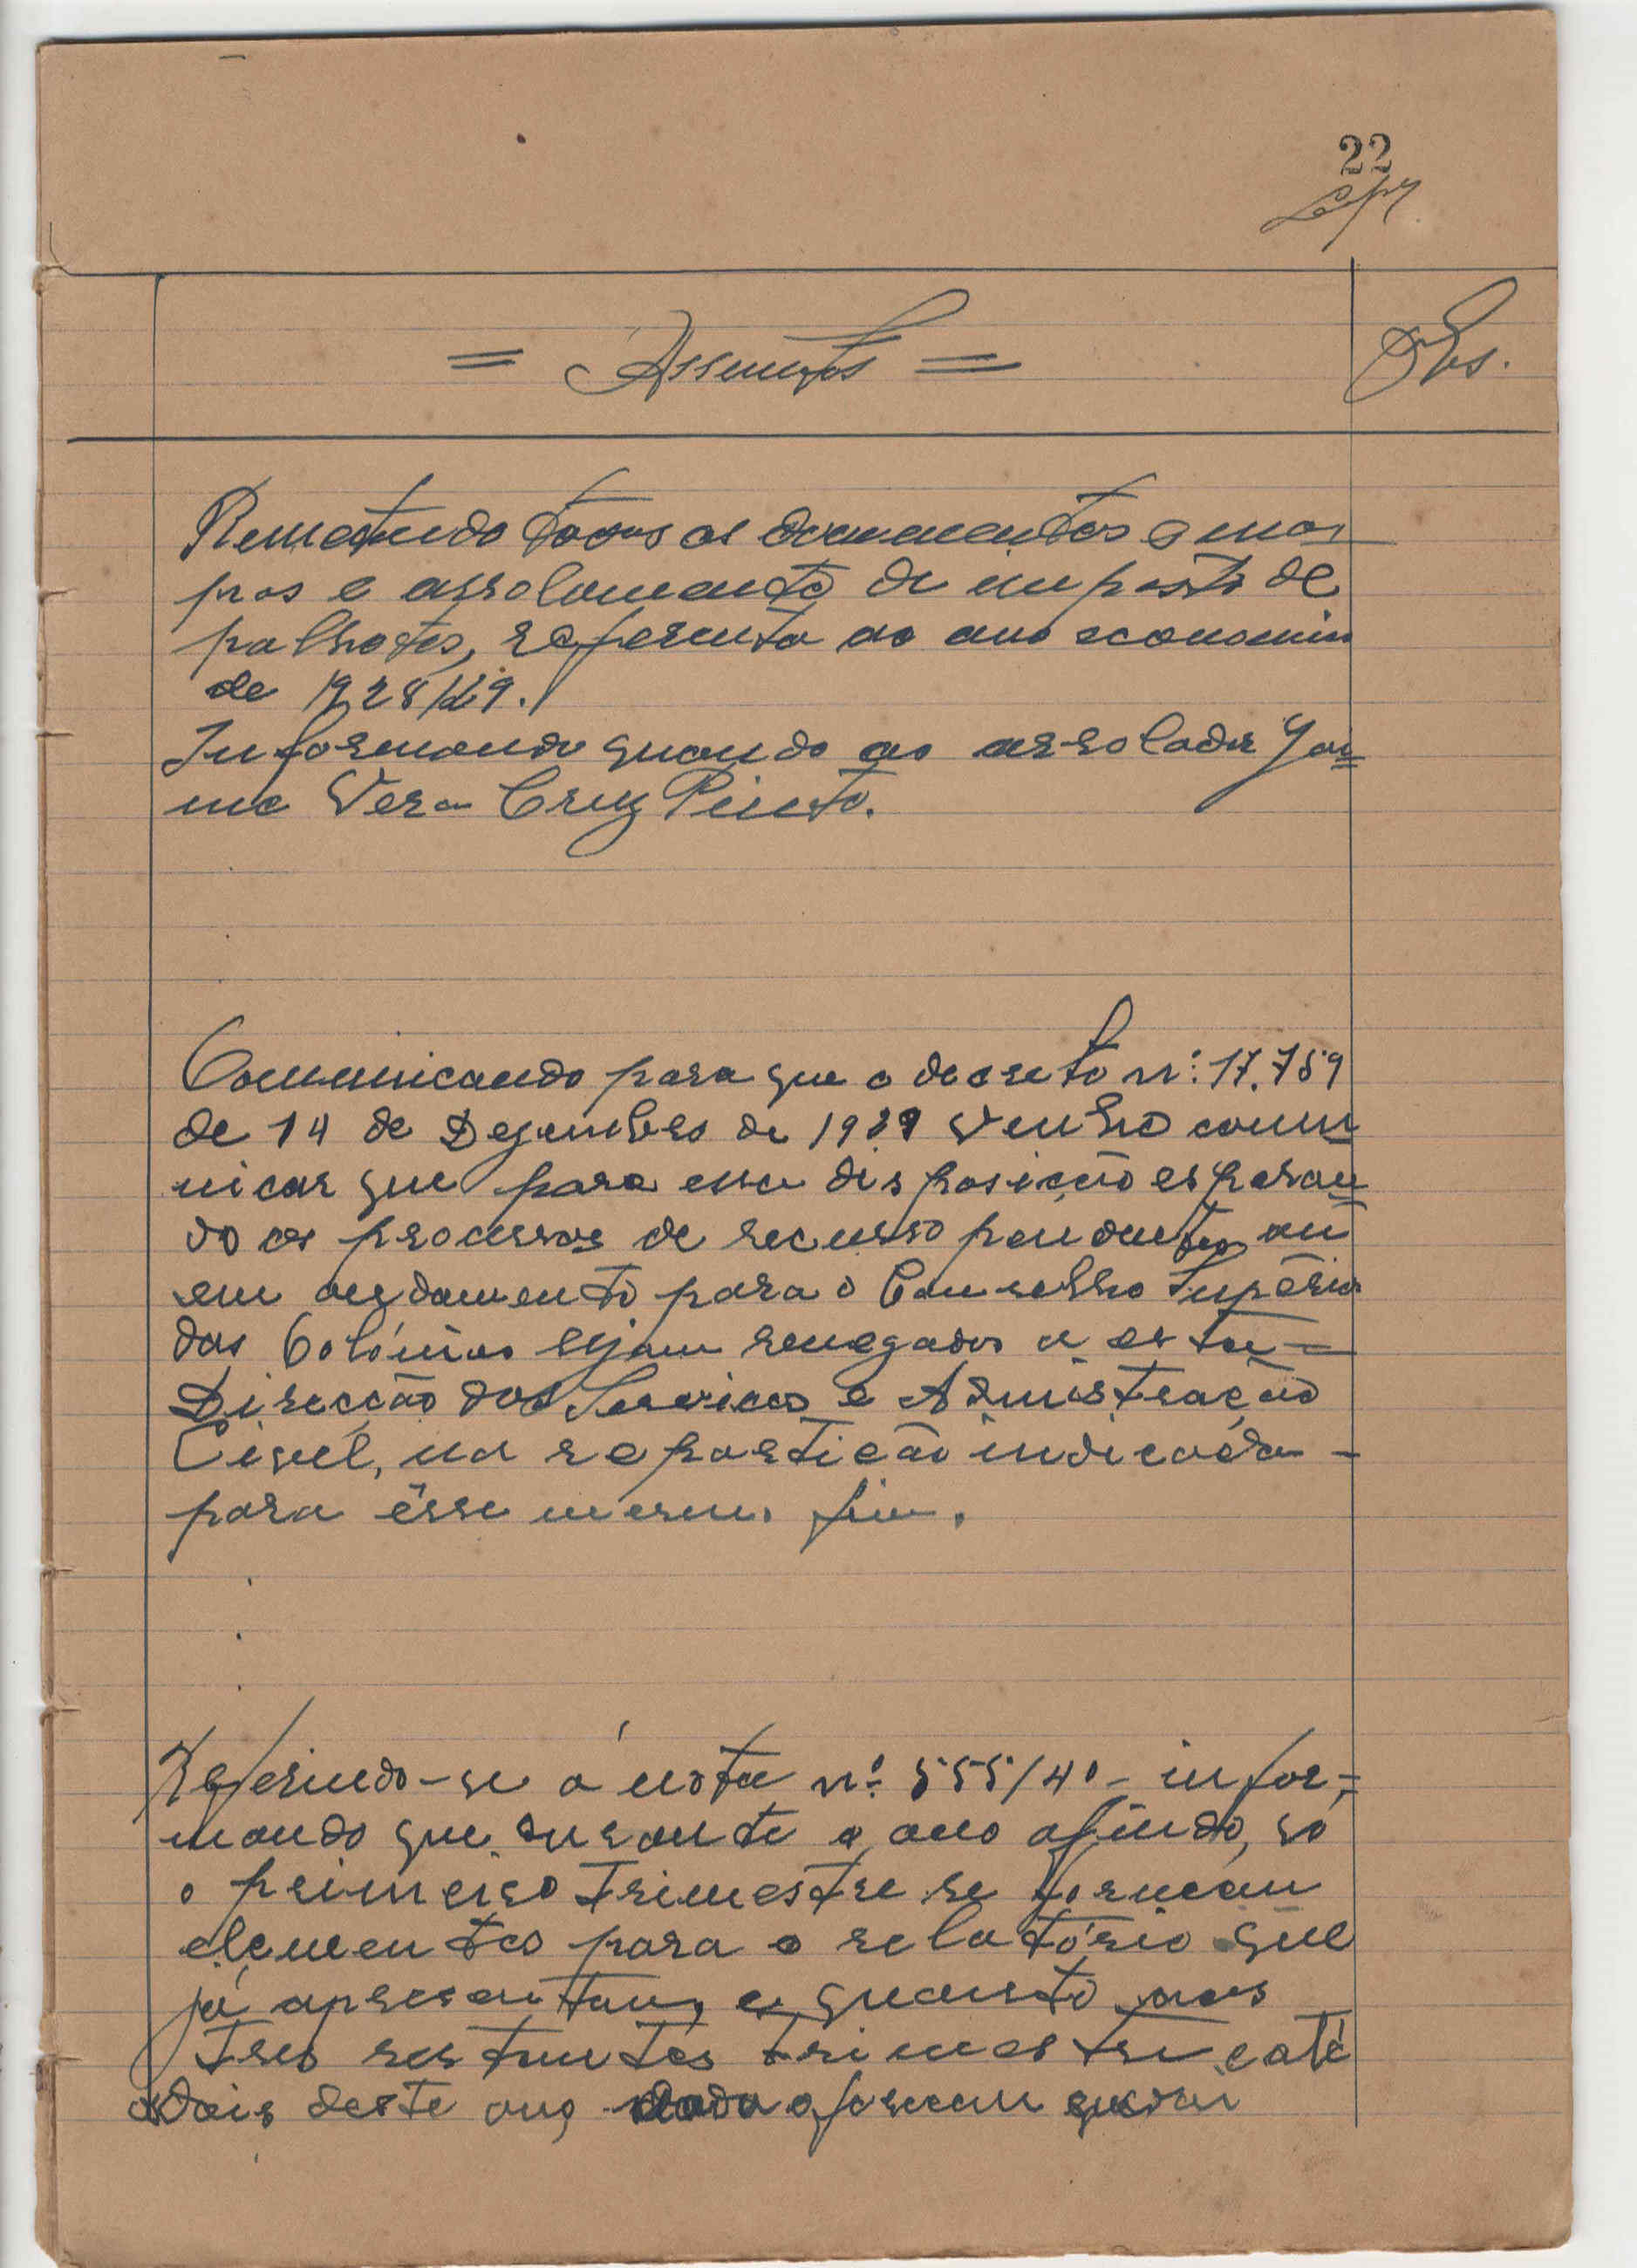 22
= Assuntos =
Obs.
Remetendo todos os documentos e ma
pas e arrolamento de imposto de
palhotas, referente ao ano economico
de 1928/29.
Informando quando ao arrolador Jai=
me Vera Cruz Pinto.
Comunicando para que o decreto nº: 17.759
de 14 de Dezembro de 1929 venho comu
nicar que para essa disposição esperan
do os processos de recurso pendentes ou
em andamento para o Conselho Supério
das Colónias sejam a esta =
Direcção dos Serviços e Admistração
Civel, na repartição indicada -
para êsse mesmo fim.
Referindo-se á nota nº 555/40 - infor=
mando que durante o ano afindo, só
o primeiro trimestre se
elementos para o relatório que
já e quanto aos
tres restantes trimestre e até
dois deste ano